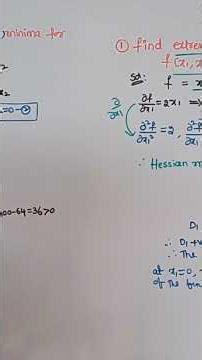 minima for
① find extrem
f(x₁, x
Sol: f = x
∂/∂x₁ ∂f/∂x₁ = 2x₁ ⇒
x₂
=0-②
∂²f/∂x₁² = 2,
∴ Hessian m
400-64=36>0
D₁
∴ D₁ +v
∴ The
at x₁=0,
of the fun